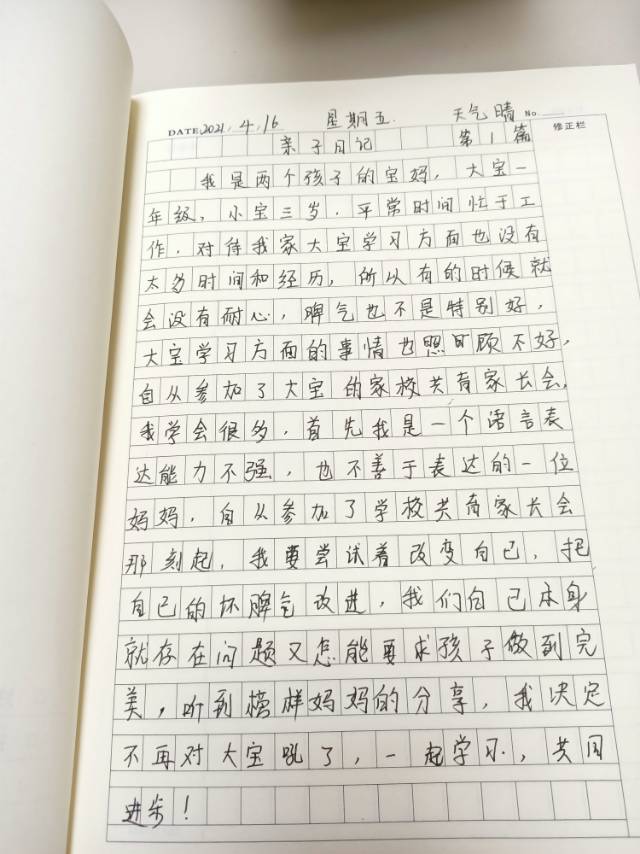 DATE 2021.4.16 星期五. 天气晴 No.
修正栏
亲子日记 第1篇
我是两个孩子的宝妈，大宝一
年级，小宝三岁．平常时间忙于工
作．对待我家大宝学习方面也没有
太多时间和经历，所以有的时候就
会没有耐心，脾气也不是特别好，
大宝学习方面的事情也照顾不好，
自从参加了大宝的家校共育家长会，
我学会很多．首先我是一个语言表
达能力不强，也不善于表达的一位
妈妈．自从参加了学校共育家长会
那刻起，我要尝试着改变自己，把
自己的坏脾气改进，我们自己本身
就存在问题又怎能要求孩子做到完
美，听到榜样妈妈的分享，我决定
不再对大宝吼了，一起学习．，共同
进步！